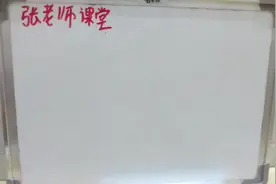 张老师课堂